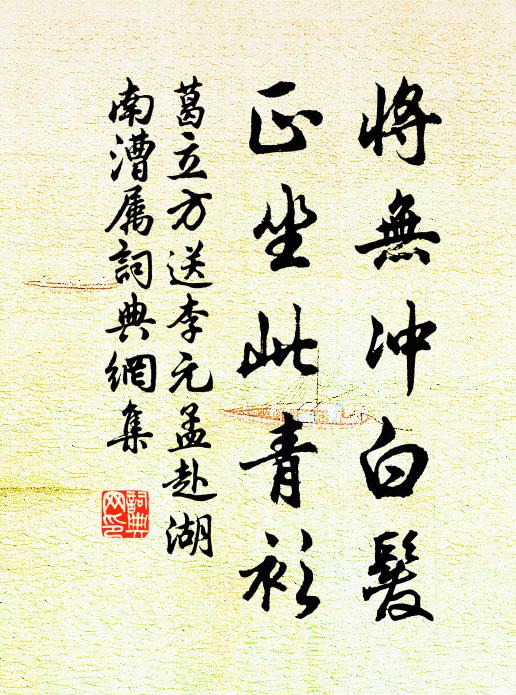 將無冲白髮
正坐此青衫
葛立方送李元孟赴湖
南漕属詞典網集
詞典
网印